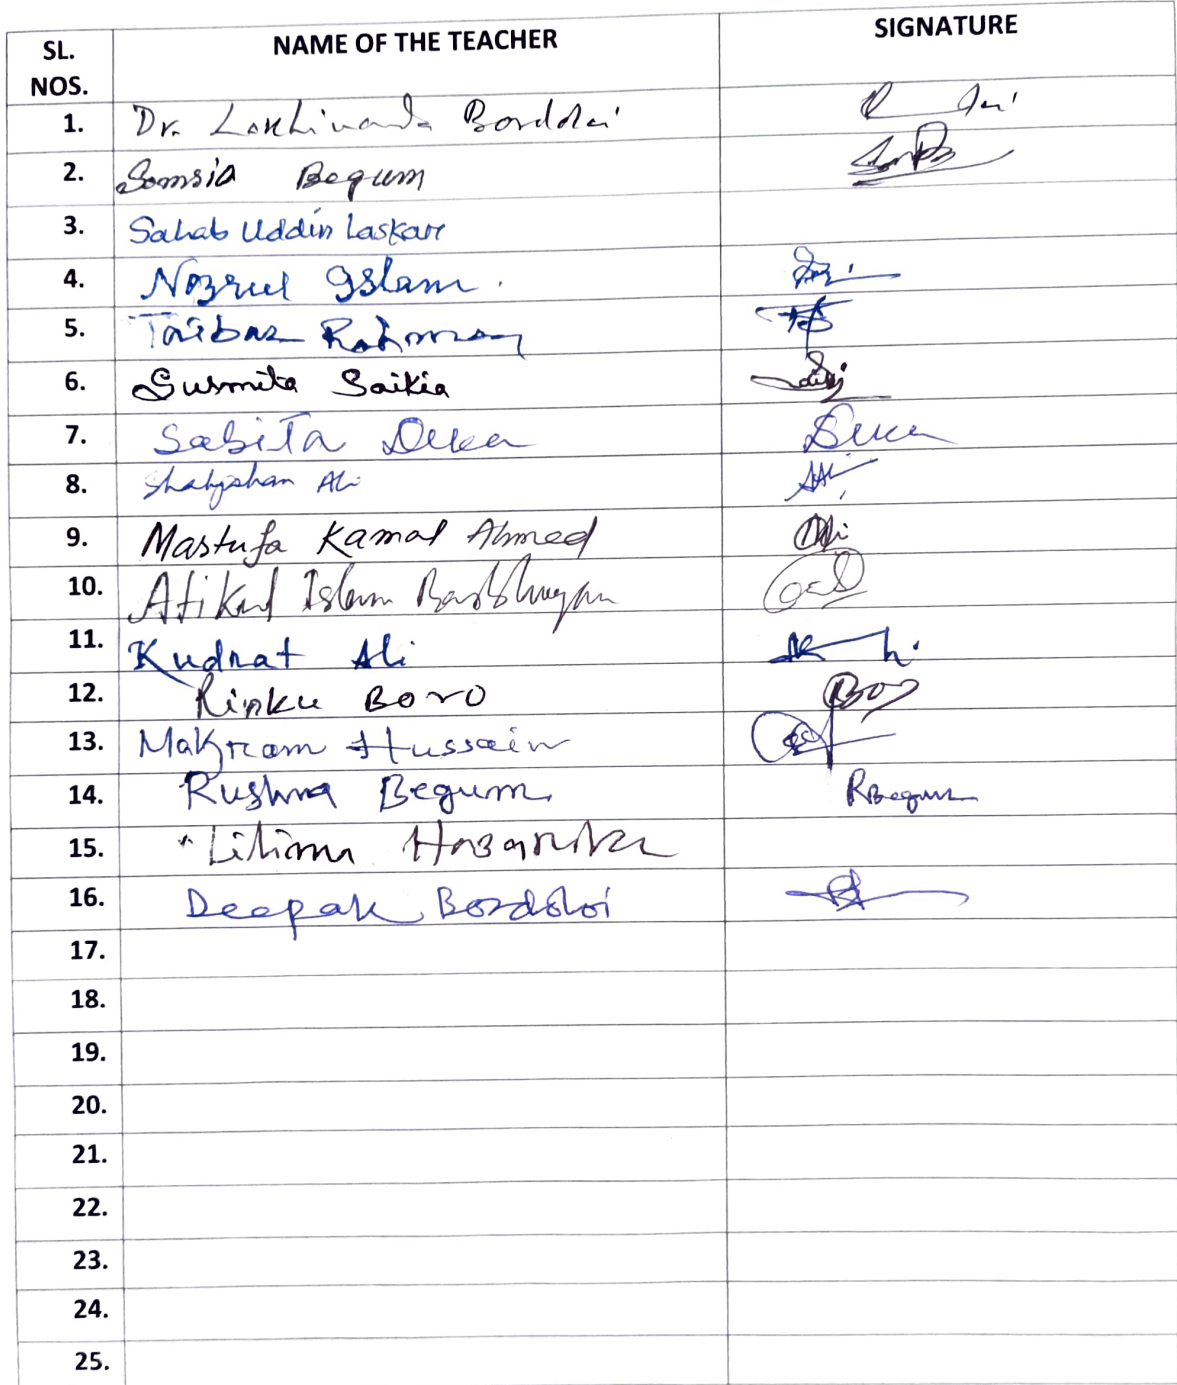 SL. NOS. NAME OF THE TEACHER SIGNATURE
1. Dr. Lakhinanda Bordoloi
2. Somsia Begum
3. Sahab Uddin Laskar
4. Nozrul Islam.
5. Taibar Rahman
6. Susmita Saikia
7. Sabita Deka Deka
8. Shahjahan Ali
9. Mastufa Kamal Ahmed
10. Atikul Islam Barbhuyan
11. Kudrat Ali
12. Rinku Boro
13. Makram Hussain
14. Rushna Begum RBegum
15. Lilima Hazarika
16. Deepak Bordoloi
17.
18.
19.
20.
21.
22.
23.
24.
25.